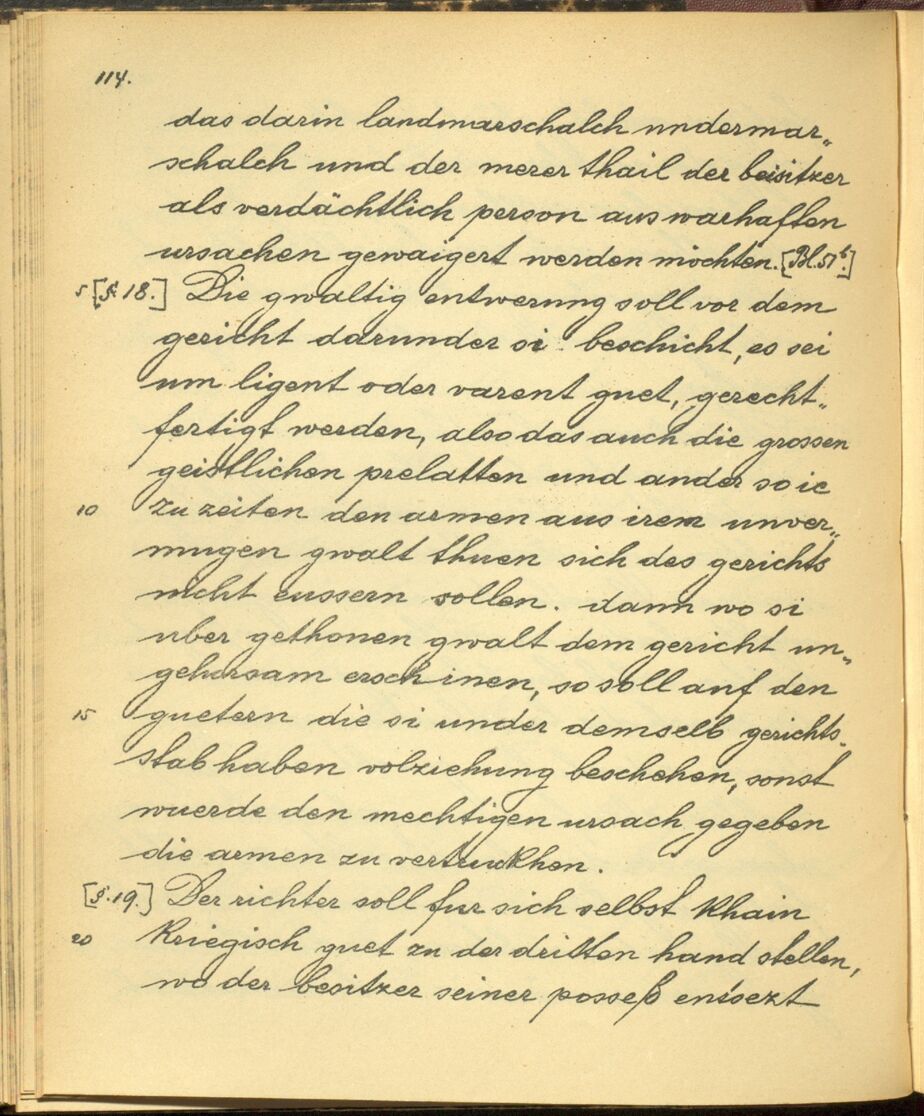 114.
das darin landmarschalch undermar„
schalch und der merer thail der beisitzer
als verdächtlich person aus warhaften
ursachen gewaigert werden möchten. [Bl. 57b.]
5 [§ 18.] Die gwaltig entwerung soll vor dem
gericht darunder si beschicht, es sei
um ligent oder varent guet, gerecht„
fertigt werden, also das auch die grossen
geistlichen prelatten und ander so ie
10 zu zeiten den armen aus irem unver„
mugen gwalt thuen sich des gerichts
nicht eussern sollen. dann wo si
uber gethonen gwalt dem gericht un„
gehorsam erscheinen, so soll auf den
15 guetern die si under demselb gerichts„
stab haben volziehung beschehen, sonst
wuerde den mechtigen ursach gegeben
die armen zu vertrukhen.
[§. 19.] Der richter soll fur sich selbst khain
20 kriegisch guet zu der dritten hand stellen,
wo der besitzer seiner posseß entsezt